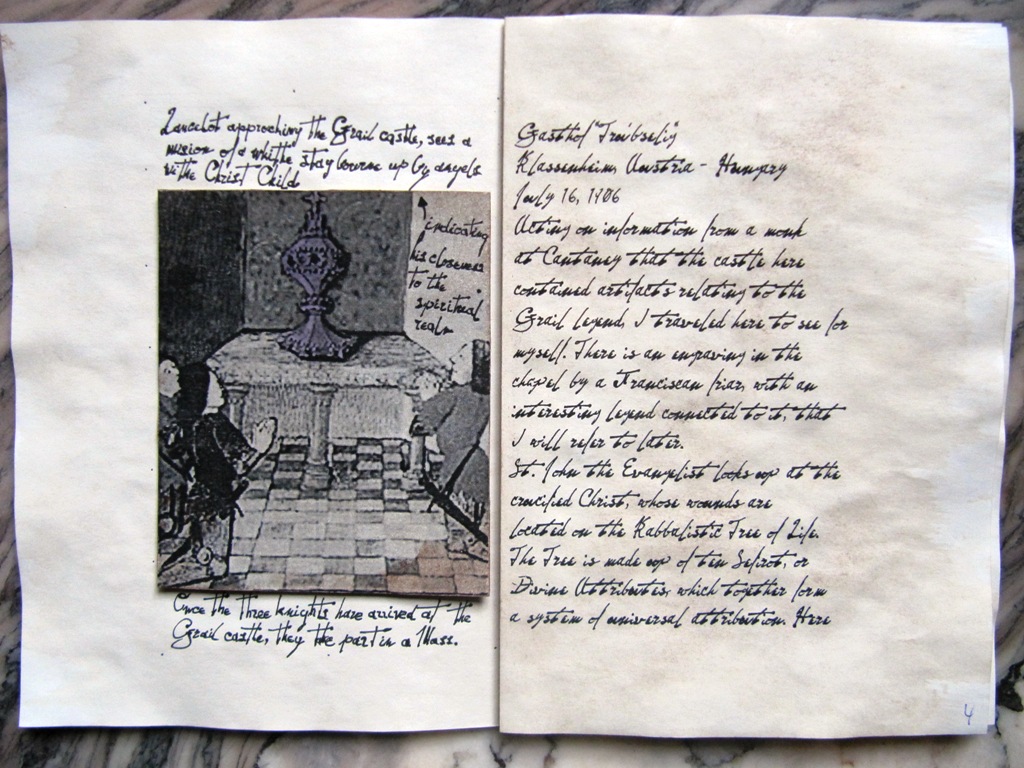 Lancelot approching the Grail castle, sees a
vision of a whithe stag bourne up by angels
withe Christ Child
indicating
his closeness
to the
spiritual
realm
Once the three knights have arrived at the
Grail castle, they the part in a Mass.
Gasthof "Troibselig"
Klassenheim, Austria - Hungary
July 16, 1906
Acting on information from a monk
at Cantaney that the castle here
contained artifacts relating to the
Grail legend, I traveled here to see for
myself. There is an engraving in the
chapel by a Franciscan friar, with an
interesting legend connected to it, that
I will refer to later.
St. John the Evangelist looks up at the
crucified Christ, whose wounds are
located on the Kabbalistic Tree of Life.
The Tree is made up of ten Sefirot, or
Divine Attributes, which together form
a system of universal attribution. Here
4